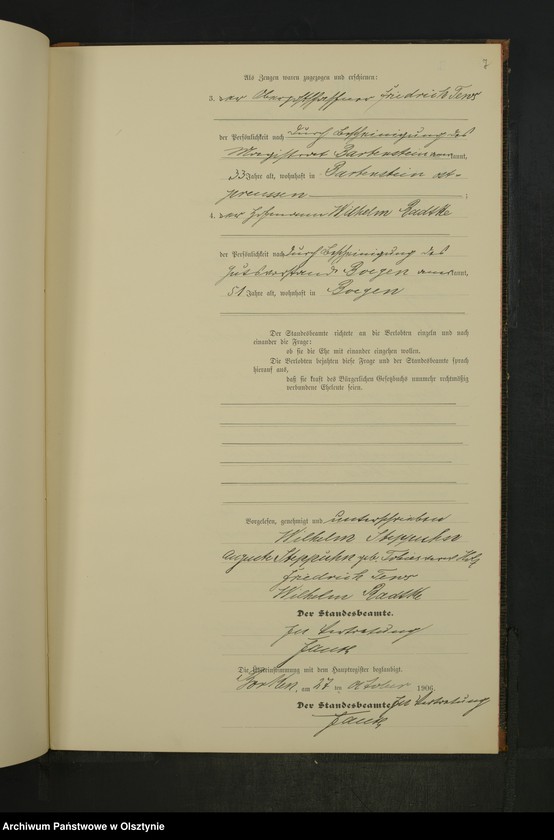 7
Als Zeugen waren zugezogen und erschienen:
3. der Oberpostschaffner Friedrich Tews
der Persönlichkeit nach durch Bescheinigung des
Magistrat Bartenstein anerkannt,
33 Jahre alt, wohnhaft in Bartenstein Ost-
preussen ;
4. der Hofmann Wilhelm Radtke
der Persönlichkeit nach durch Bescheinigung des
Gutsvorstand Boegen anerkannt,
51 Jahre alt, wohnhaft in Boegen
Der Standesbeamte richtete an die Verlobten einzeln und nach
einander die Frage:
ob sie die Ehe mit einander eingehen wollen.
Die Verlobten bejahten diese Frage und der Standesbeamte sprach
hierauf aus,
daß sie kraft des Bürgerlichen Gesetzbuchs nunmehr rechtmäßig
verbundene Eheleute seien.
Vorgelesen, genehmigt und unterschrieben
Wilhelm Steppuhn
Auguste Steppuhn geb. Tobias verw.
Friedrich Tews
Wilhelm Radtke
Der Standesbeamte.
In Vertretung
Die Übereinstimmung mit dem Hauptregister beglaubigt.
am 27 ten Oktober 1906.
Der Standesbeamte In Vertretung
Archiwum Państwowe w Olsztynie